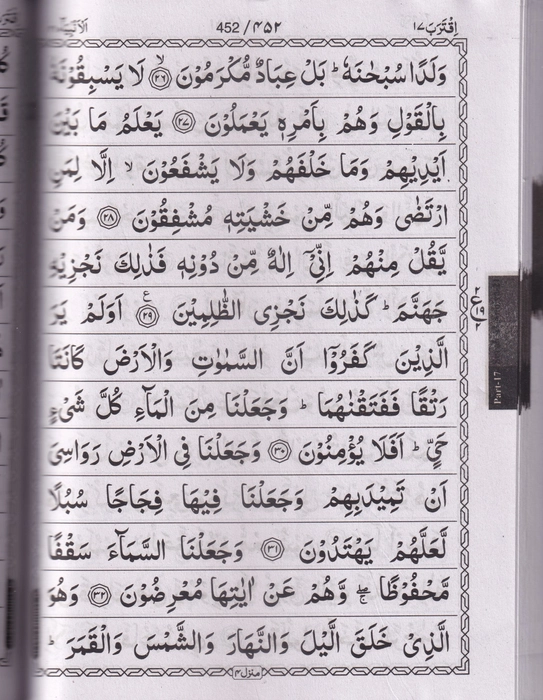 اِقْتَرَبَ ١٧
۴۵۲ / 452
وَلَدًا سُبْحٰنَهٗ ؕ بَلْ عِبَادٌ مُّكْرَمُوْنَ ۙ﴿۲۶﴾ لَا يَسْبِقُوْنَهٗ
بِالْقَوْلِ وَهُمْ بِاَمْرِهٖ يَعْمَلُوْنَ ﴿۲۷﴾ يَعْلَمُ مَا بَيْنَ
اَيْدِيْهِمْ وَمَا خَلْفَهُمْ وَلَا يَشْفَعُوْنَ ۙ اِلَّا لِمَنِ
ارْتَضٰى وَهُمْ مِّنْ خَشْيَتِهٖ مُشْفِقُوْنَ ﴿۲۸﴾ وَمَنْ
يَّقُلْ مِنْهُمْ اِنِّيْۤ اِلٰهٌ مِّنْ دُوْنِهٖ فَذٰلِكَ نَجْزِيْهِ
جَهَنَّمَ ؕ كَذٰلِكَ نَجْزِى الظّٰلِمِيْنَ ﴿۲۹﴾ ع اَوَلَمْ يَرَ
الَّذِيْنَ كَفَرُوْۤا اَنَّ السَّمٰوٰتِ وَالْاَرْضَ كَانَتَا
رَتْقًا فَفَتَقْنٰهُمَا ؕ وَجَعَلْنَا مِنَ الْمَآءِ كُلَّ شَىْءٍ
حَىٍّ ؕ اَفَلَا يُؤْمِنُوْنَ ﴿۳۰﴾ وَجَعَلْنَا فِى الْاَرْضِ رَوَاسِىَ
اَنْ تَمِيْدَبِهِمْ وَجَعَلْنَا فِيْهَا فِجَاجًا سُبُلًا
لَّعَلَّهُمْ يَهْتَدُوْنَ ﴿۳۱﴾ وَجَعَلْنَا السَّمَآءَ سَقْفًا
مَّحْفُوْظًا ۖۚ وَّهُمْ عَنْ اٰيٰتِهَا مُعْرِضُوْنَ ﴿۳۲﴾ وَهُوَ
الَّذِىْ خَلَقَ الَّيْلَ وَالنَّهَارَ وَالشَّمْسَ وَالْقَمَرَ ؕ
منزل ۴
۲ ع ١٩ ۲
Part-17